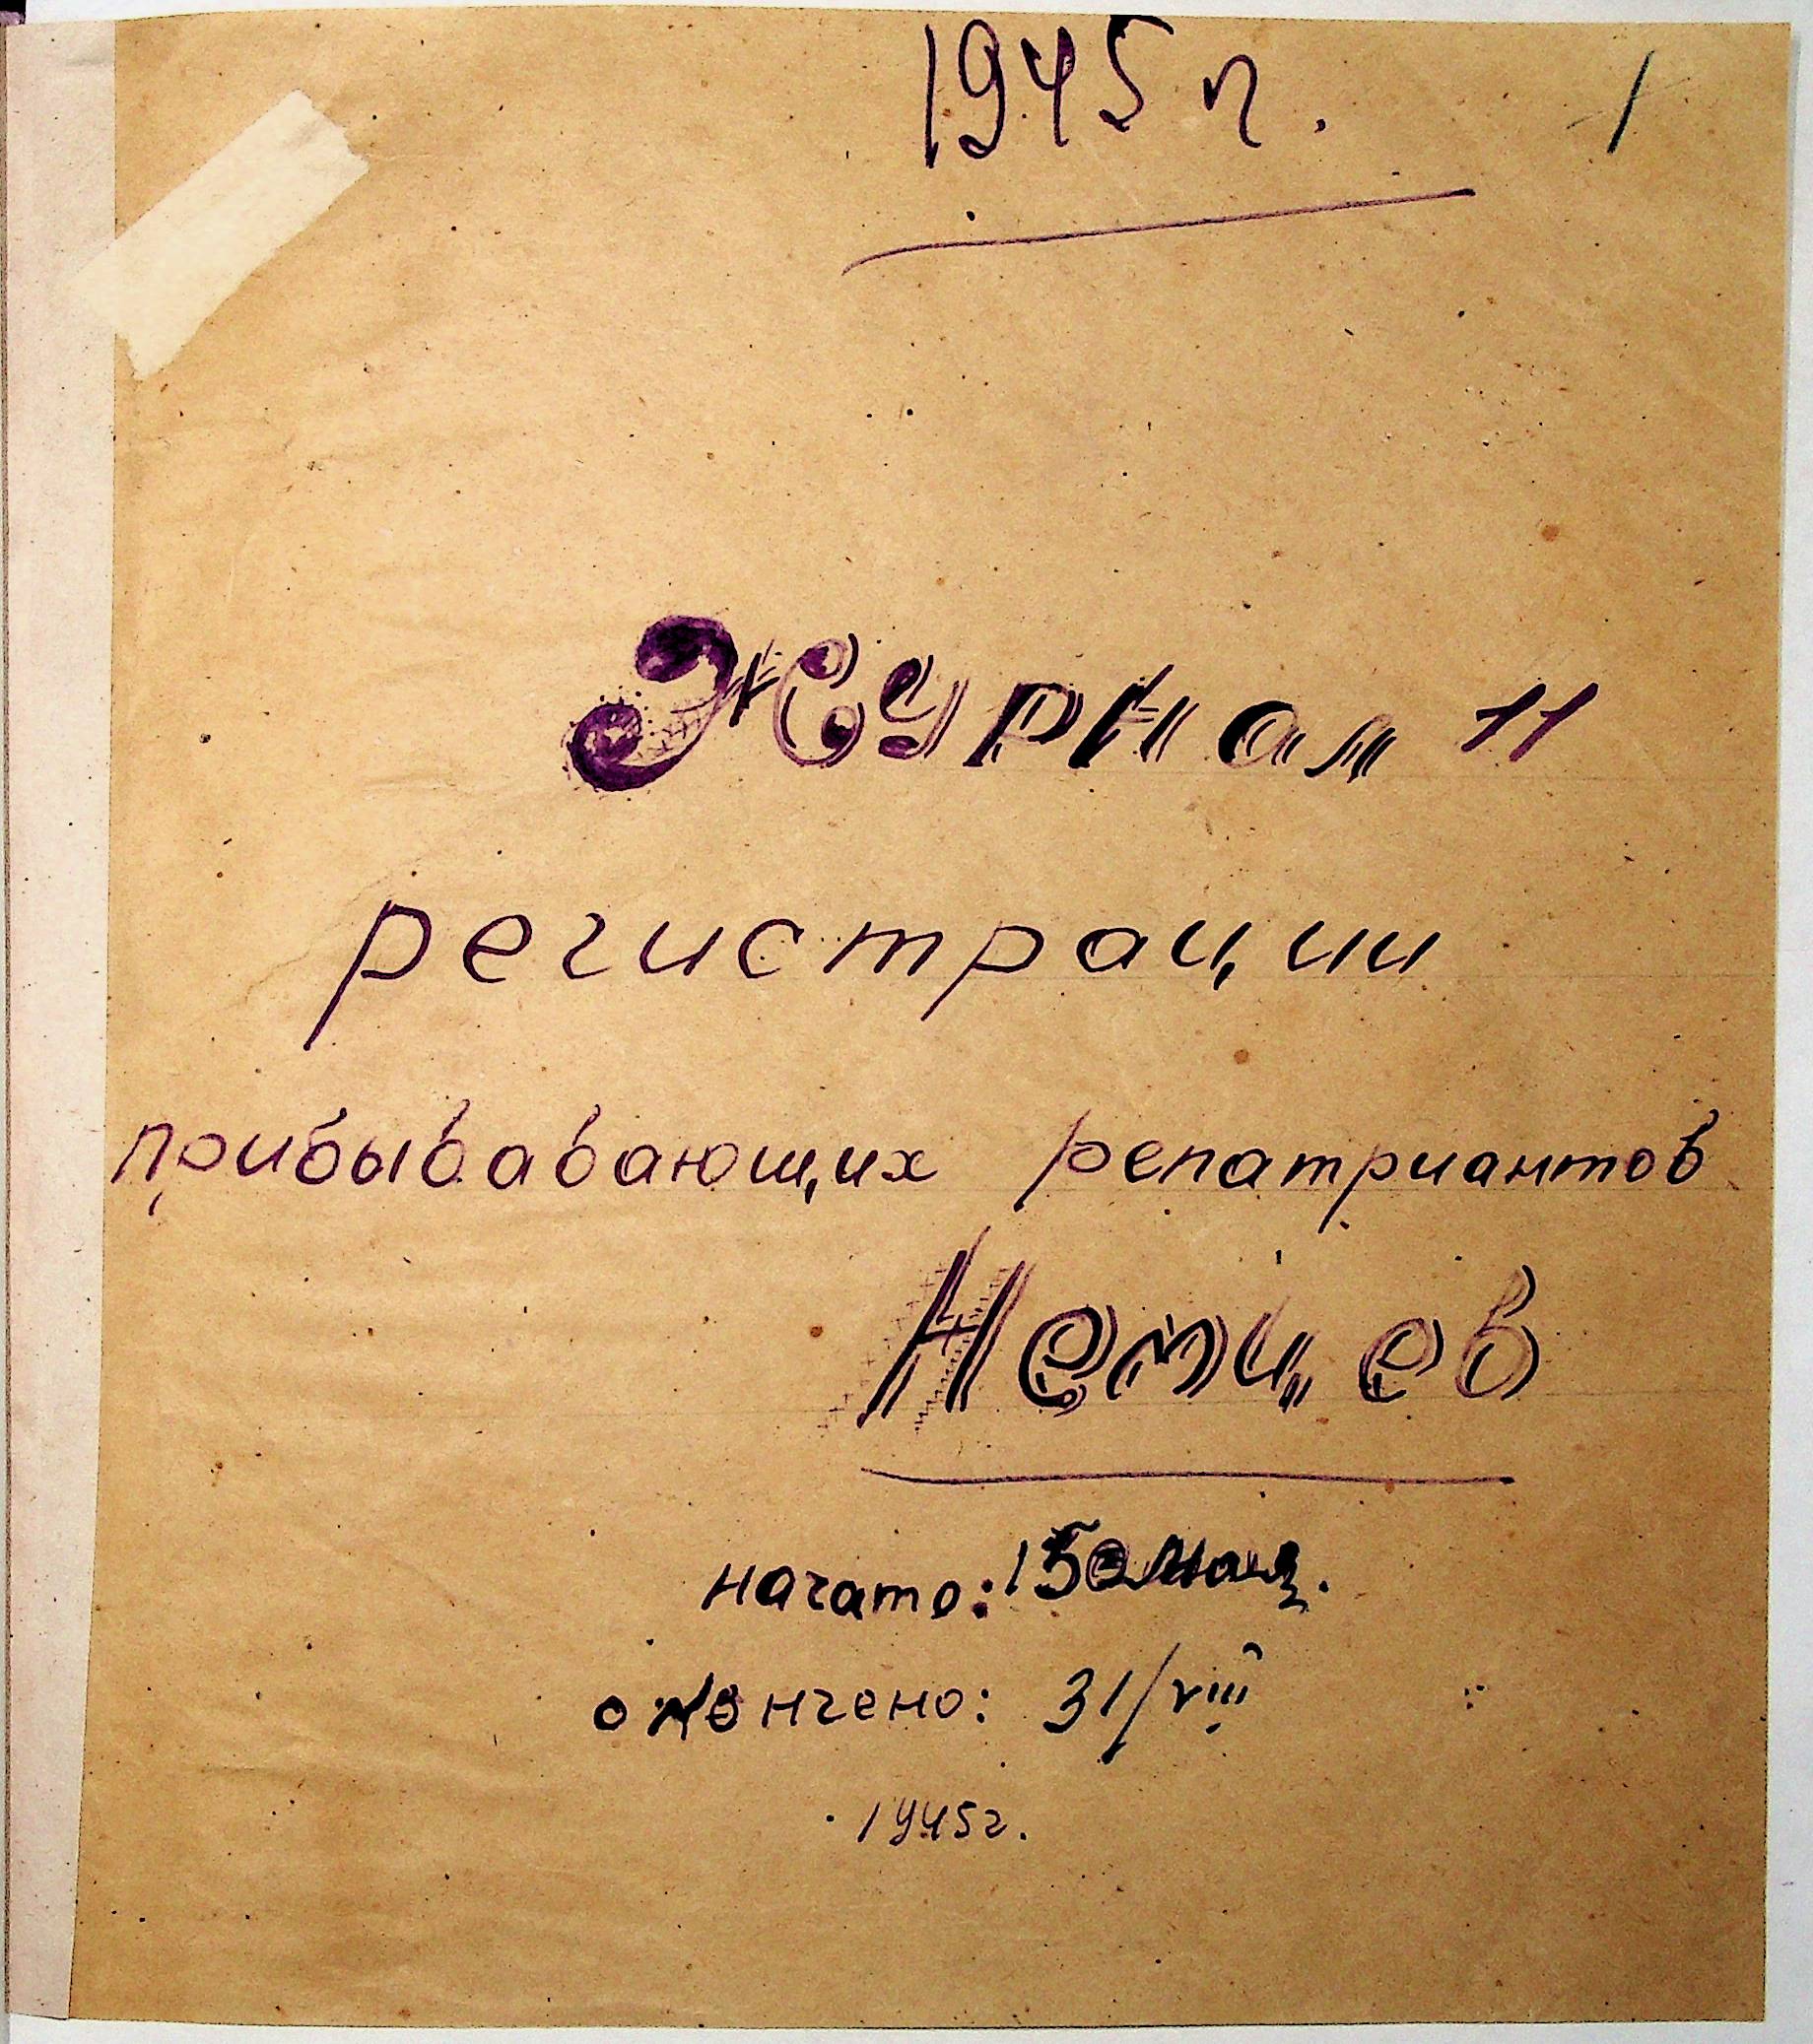 1945 г. 1
Журнал 11
регистрации
прибывавающих репатриантов
Немцев
начато: 15 мая.
окончено: 31/VIII
1945г.